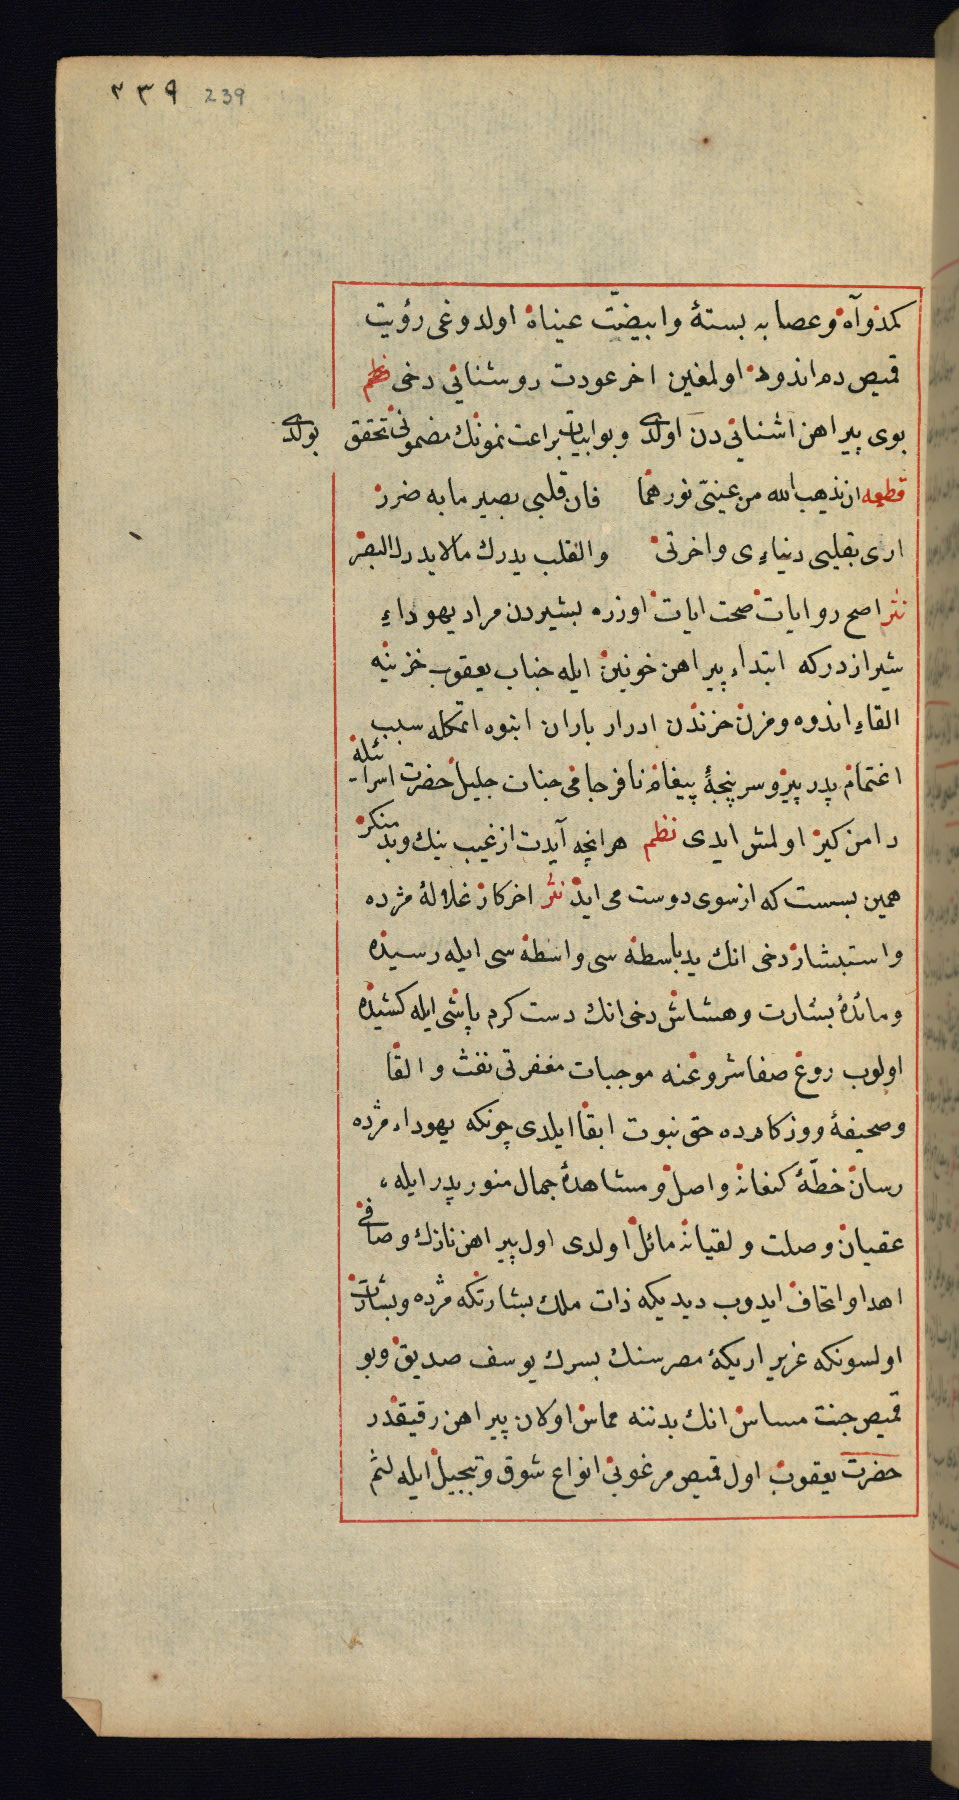 ٢٣٩ 239
كمذوآه وعصابه بستۀ وابيضّت عيناه اولدوغى رؤيت
قميص دم اندوه اولمغين اخر عودت روشنائى دخى نظم
بوى پيراهن اشنائى دن اولدى وبو ابيات براعت نمونك مضمونى تحقق بولدى
قطعه ان تذهب الله من عينىّ نورهما فان قلبى بصير ما به ضرر
ارى بقلبى دنياءى واخرتى والقلب يدرك مالا يدرك البصر
نثر اصح روايات صحت ايات اوزره بشيردن مراد يهوداء
شيرازدركه ابتداء پيراهن خونين ايله جناب يعقوب خزينه
القاء اندوه وحزن حزندن ادرار باران انبوه اتمكله سبب
اغتمام پدر پير وسرپنجۀ پيغام نافرجامى جنات جليل حضرت اسرائيله
دامن كير اولمش ايدى نظم هرانچه آيدت از غيب نيك وبد منكر
همين بسست كه از سوى دوست مى ايد نثر اخر كار غلالۀ مژده
واستبشار دخى انك يد باسطه سى واسطه سى ايله رسيده
ومائدۀ بشارت وهشاش دخى انك دست كرم پاشى ايله كشيده
اولوب روغ صفاشروغنه موجبات مغفرتى نفث والقا
وصحيفۀ ووزكامرده حق نبوت ابقا ايلدى چونكه يهوداء مژده
رسان خطّۀ كنعانه واصل ومشاهدۀ جمال منور پدر ايله،
عقيان وصلت ولقيانه مائل اولدى اول پيراهن نازك وصافى
اهدا واتحاف ايدوب ديديكه ذات ملك بشارتكه مژده وبشارت
اولسونكه عزيز اريكۀ مصر سنك پسرك يوسف صديق وبو
قميص جنت مساس انك بدننه مماس اولان پيراهن رقيقدر
حضرت يعقوب اول قميص مرغوبى انواع شوق وتبجيل ايله لثم